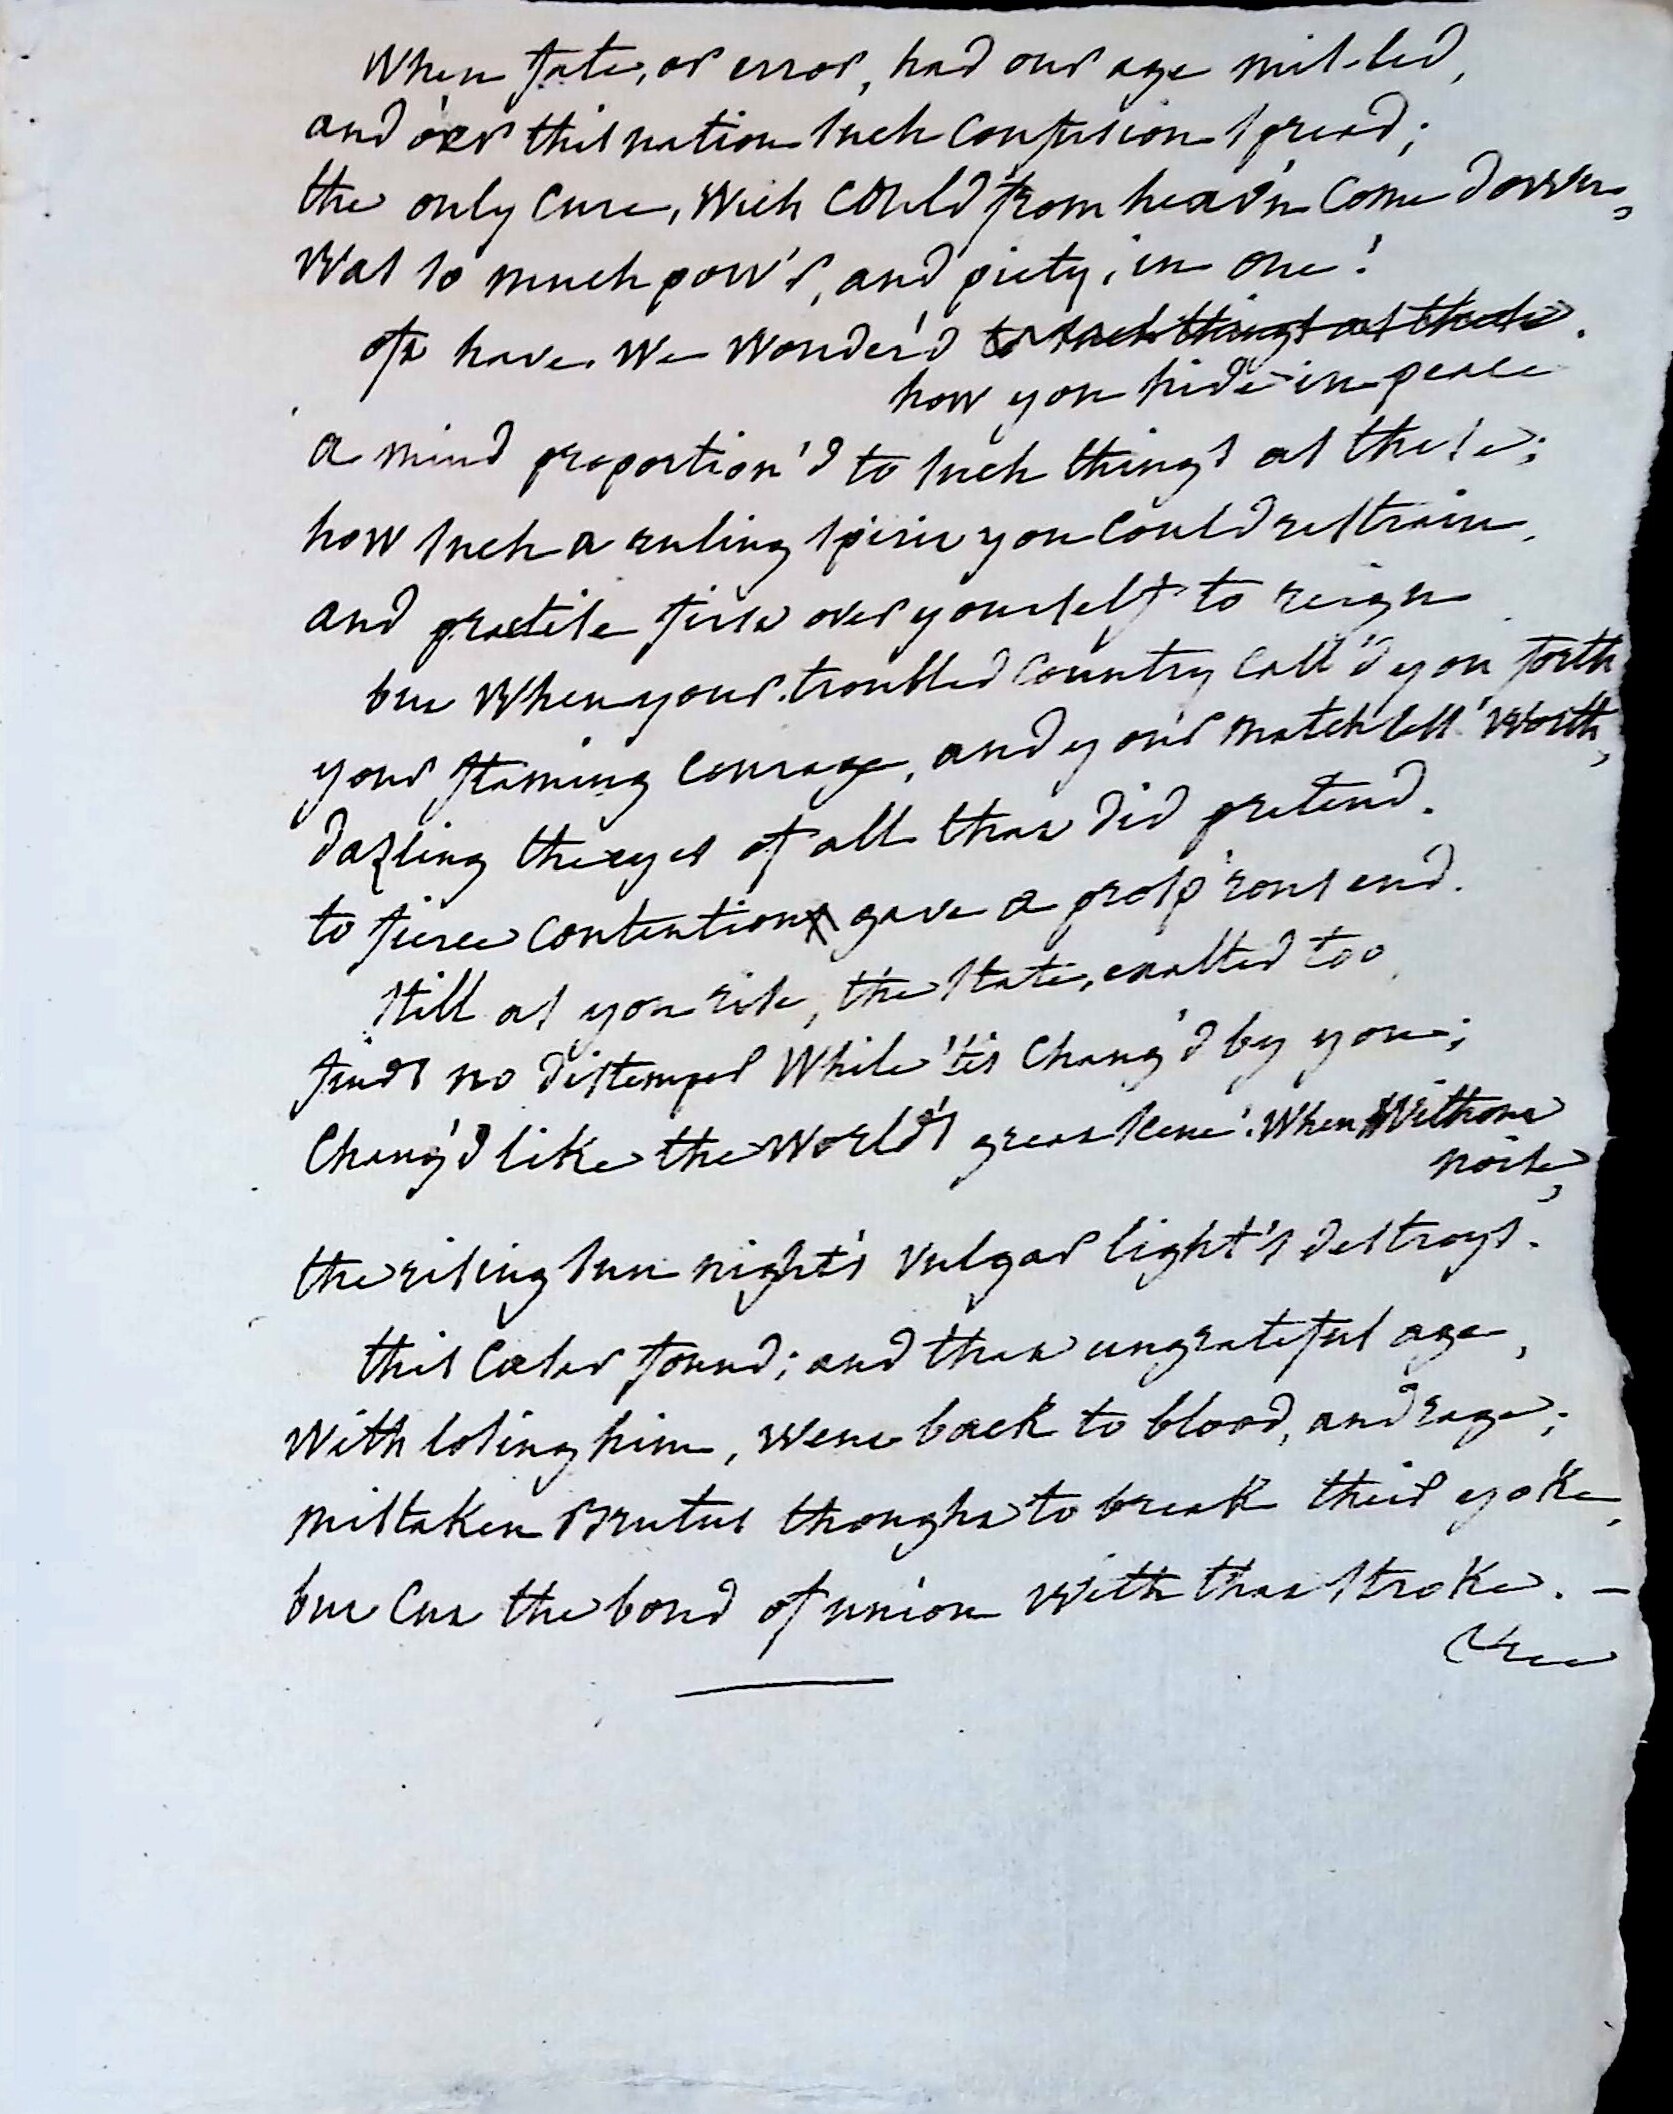 When fate, or error, had our age mis-led,
and o'er this nation such confusion spread;
the only cure, wich could from heav'n come down,
Was so much pow'r, and piety, in one!
oft have we wonder'd to such things as these.
how you hide in peace
a mind proportion'd to such things as these;
how such a ruling spirit you could restrain,
and practise first over yourself to reign
but when your troubled country call'd you forth
your flaming courage, and your matchless worth,
dazling the eyes of all that did pretend.
to fierce contention gave a prosp'rous end.
still as you rise, the state, exalted too,
finds no distemper while 'tis chang'd by you;
Chang'd like the World's great scene! When Without
noise,
the rising sun night's vulgar light's destroys.
this Cæsar found; and that ungrateful age,
With losing him, went back to blood, and rage;
mistaken Brutus thought to break their yoke,
but cut the bond of union with that stroke. -